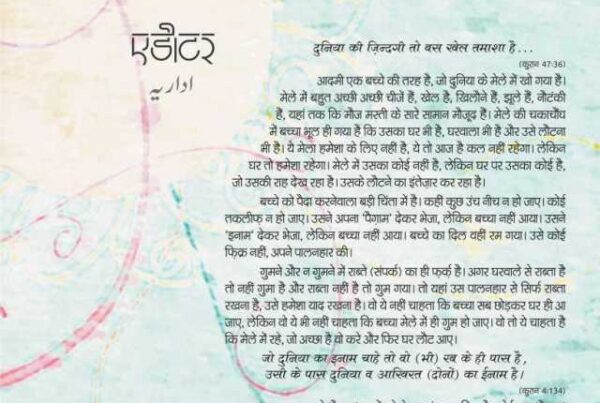 एडीटर
اداریہ
दुनिया की ज़िन्दगी तो बस खेल तमाशा है...
(कुरान 47:36)
आदमी एक बच्चे की तरह है, जो दुनिया के मेले में खो गया है।
मेले में बहुत अच्छी अच्छी चीजें हैं, खेल है, खिलौने हैं, झूले हैं, नौटंकी
है, यहां तक कि मौज मस्ती के सारे सामान मौजूद हैं। मेले की चकाचौंध
में बच्चा भूल ही गया है कि उसका घर भी है, घरवाला भी है और उसे लौटना
भी है। ये मेला हमेशा के लिए नहीं है, ये तो आज है कल नहीं रहेगा। लेकिन
घर तो हमेशा रहेगा। मेले में उसका कोई नहीं है, लेकिन घर पर उसका कोई है,
जो उसकी राह देख रहा है। उसके लौटने का इंतेज़ार कर रहा है।
बच्चे को पैदा करनेवाला बड़ी चिंता में है। कहीं कुछ उंच नीच न हो जाए। कोई
तकलीफ़ न हो जाए। उसने अपना 'पैग़ाम' देकर भेजा, लेकिन बच्चा नहीं आया। उसने
'इनाम' देकर भेजा, लेकिन बच्चा नहीं आया। बच्चे का दिल वहीं रम गया। उसे कोई
फ़िक्र नहीं, अपने पालनहार की।
गुमने और न गुमने में राब्ते (संपर्क) का ही फ़र्क़ है। अगर घरवाले से राब्ता है
तो नहीं गुमा है और राब्ता नहीं है तो गुम गया। तो यहां उस पालनहार से सिर्फ राब्ता
रखना है, उसे हमेशा याद रखना है। वो ये नहीं चाहता कि बच्चा सब छोड़कर घर ही आ
जाए, लेकिन वो ये भी नहीं चाहता कि बच्चा मेले में ही गुम हो जाए। वो तो ये चाहता है
कि मेले में रहे, जो अच्छा है वो करे और फिर घर लौट आए।
जो दुनिया का इनाम चाहे तो वो (भी) रब के ही पास है,
उसी के पास दुनिया व आख़िरत (दोनों) का ईनाम है।
(कुरान 4:134)